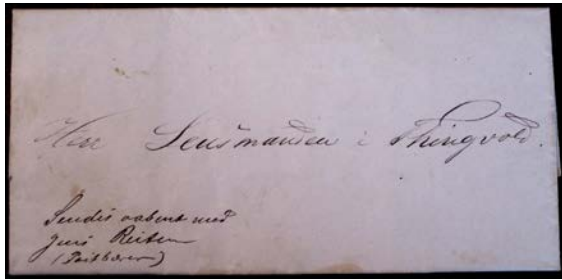 Herr Lensmanden i Thingvold.
Sendes aabent med
Jens Reiten
(Postbærer)